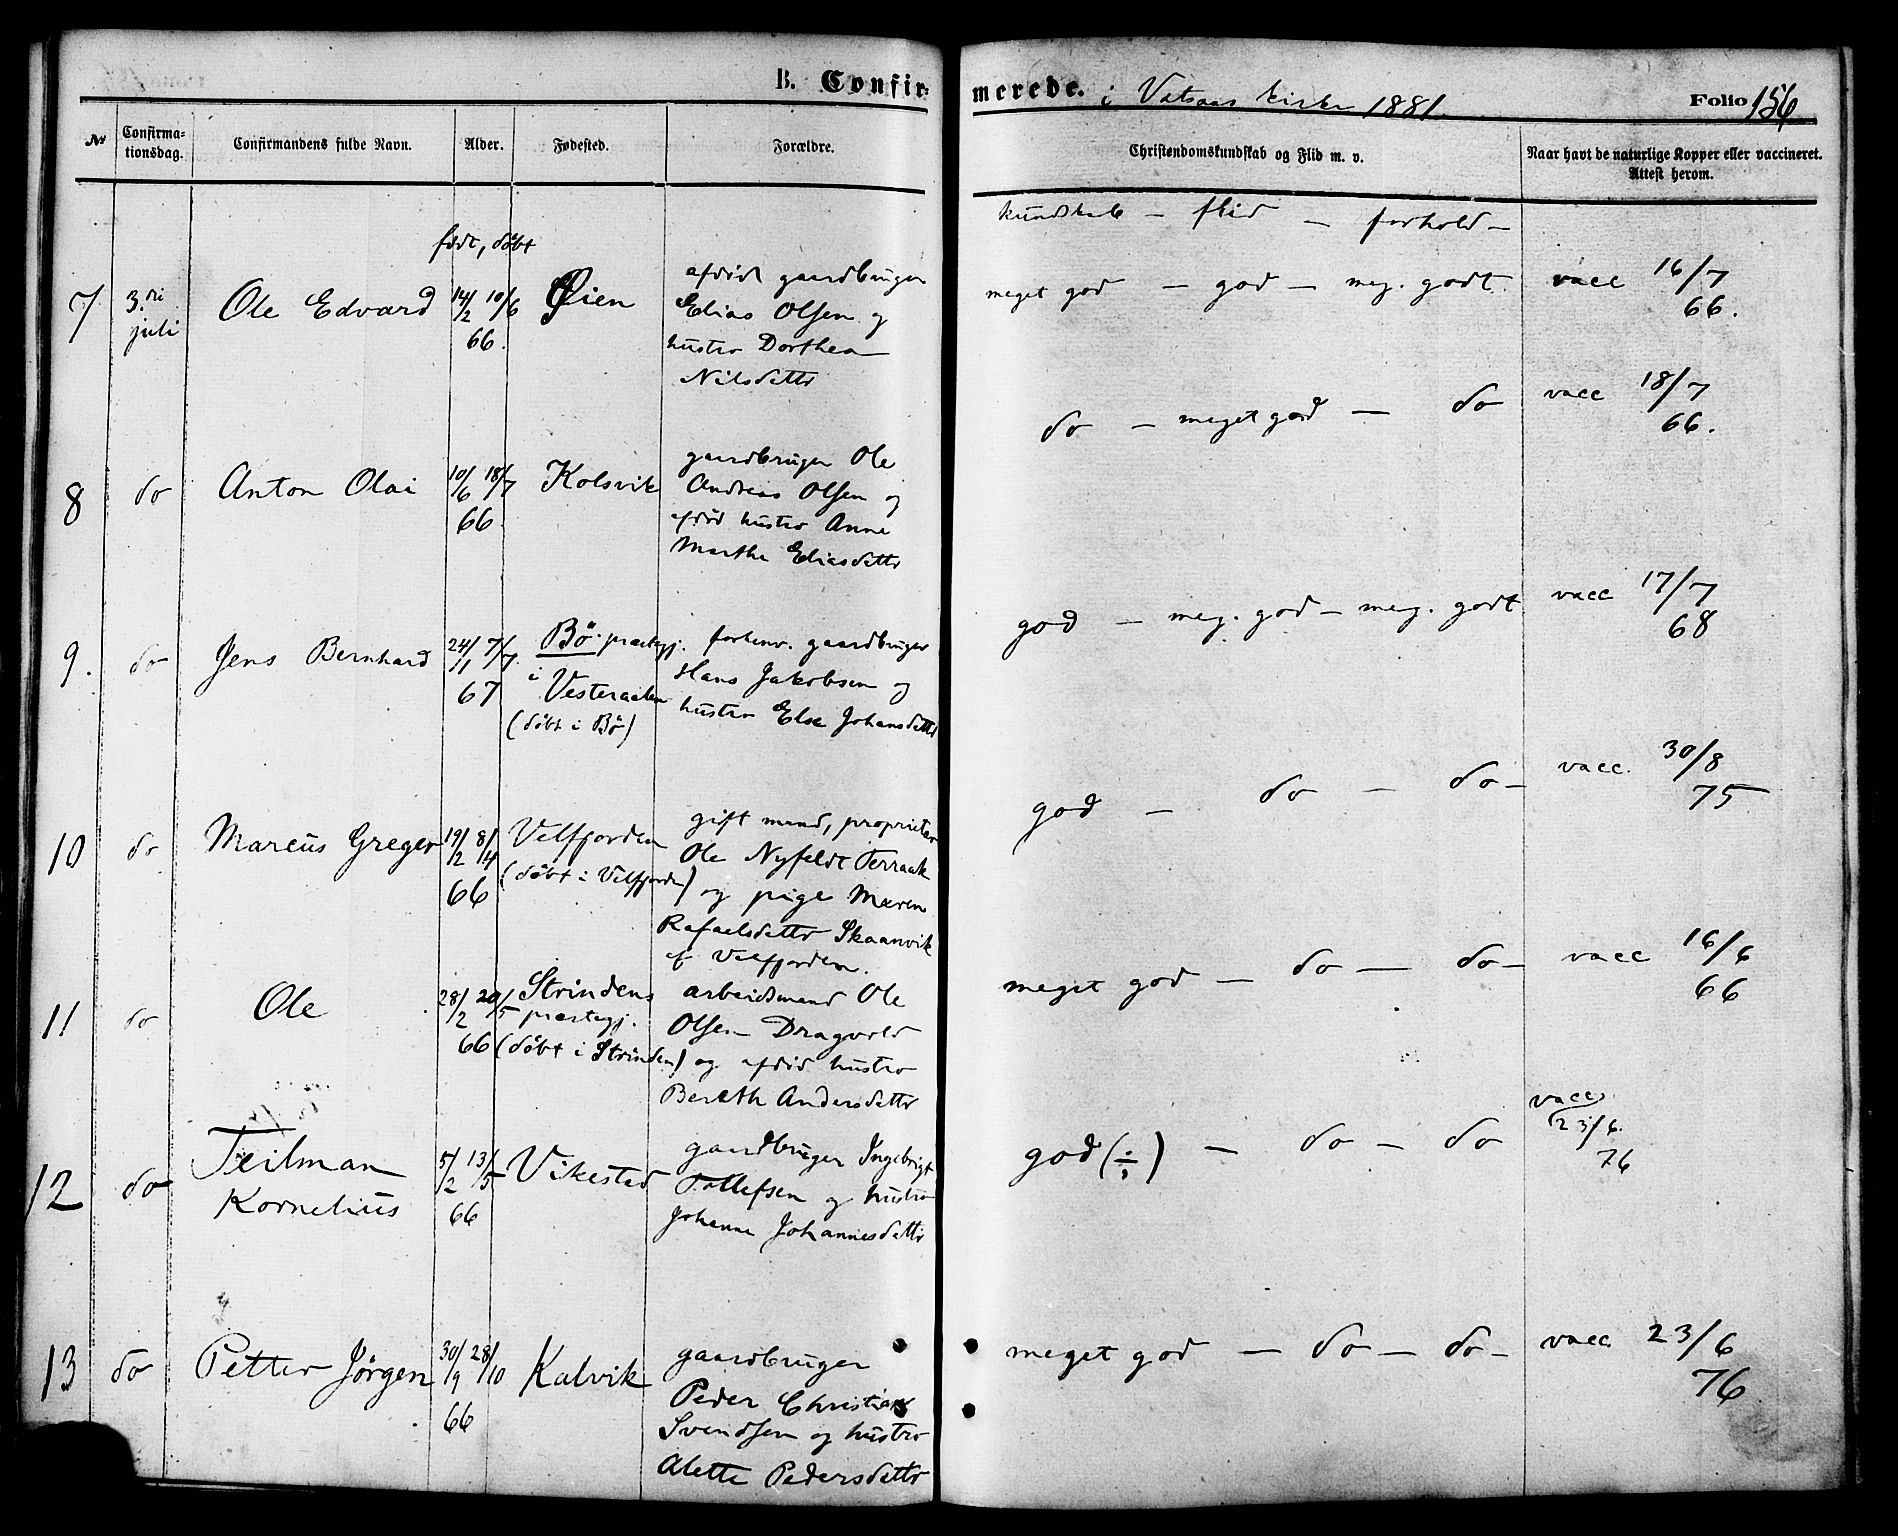 B. Confir-
merede. i Vatsaas kirke 1881.
Folio 156
№
Confirma-
tionsdag.
Confirmandens fulde Navn.
Alder.
Fødested.
Forældre.
Christendomskundskab og Flid m. v.
Naar havt de naturlige Kopper eller vaccineret.
Attest herom.
født, döbt
kundskab – flid – forhold –
7
3.die
juli
Ole Edvard
14/2 10/6
66.
Øien
afdöd gaardbruger
Elias Olsen og
hustro Dorthea
Nilsdattr
meget god – god – meg. godt.
vacc 16/7
66.
8
do
Anton Olai
10/6 18/7
66.
Kolsvik
gaardbruger Ole
Andreas Olsen og
afdöd hustro Anne
Marthe Eliasdattr
do – meget god – do
vacc 18/7
66.
9.
do
Jens Bernhard
24/1 7/7.
67
Bö præstegj.
i Vesteraalen
(döbt i Bö)
forhenv. gaardbruger
Hans Jakobsen og
hustro Else Johansdattr
god – meg. god – meg. godt
vacc 17/7
68
10
do
Marcus Greger
19/2 8/4
66
Velfjorden
(döbt i Velfjorden)
gift mand, proprietær
Ole Nyfeldt Terraak
og pige Maren
Rafaelsdattr Skaanvik
af Velfjorden.
god – do – do –
vacc. 30/8
75
11
do
Ole
28/2 20/5
66
Strindens
præstegj.
(döbt i Strinden)
arbeidsmand Ole
Olsen Dragvold
og afdöd hustro
Bereth Andersdattr
meget god – do – do –
vacc 16/6
66
12
do
Teilman
Kornelius
5/2 13/5
66
Vikestad
gaardbruger Ingebrigt
Tollefsen og hustro
Johanna Johannesdattr
god (÷) – do – do
vacc
23/6.
76
13
do
Petter Jörgen
30/9 28/10
66
Kalvik
gaardbruger
Peder Christian
Svendsen og hustro
Alette Pedersdattr
meget god – do – do –
vacc 23/6
76